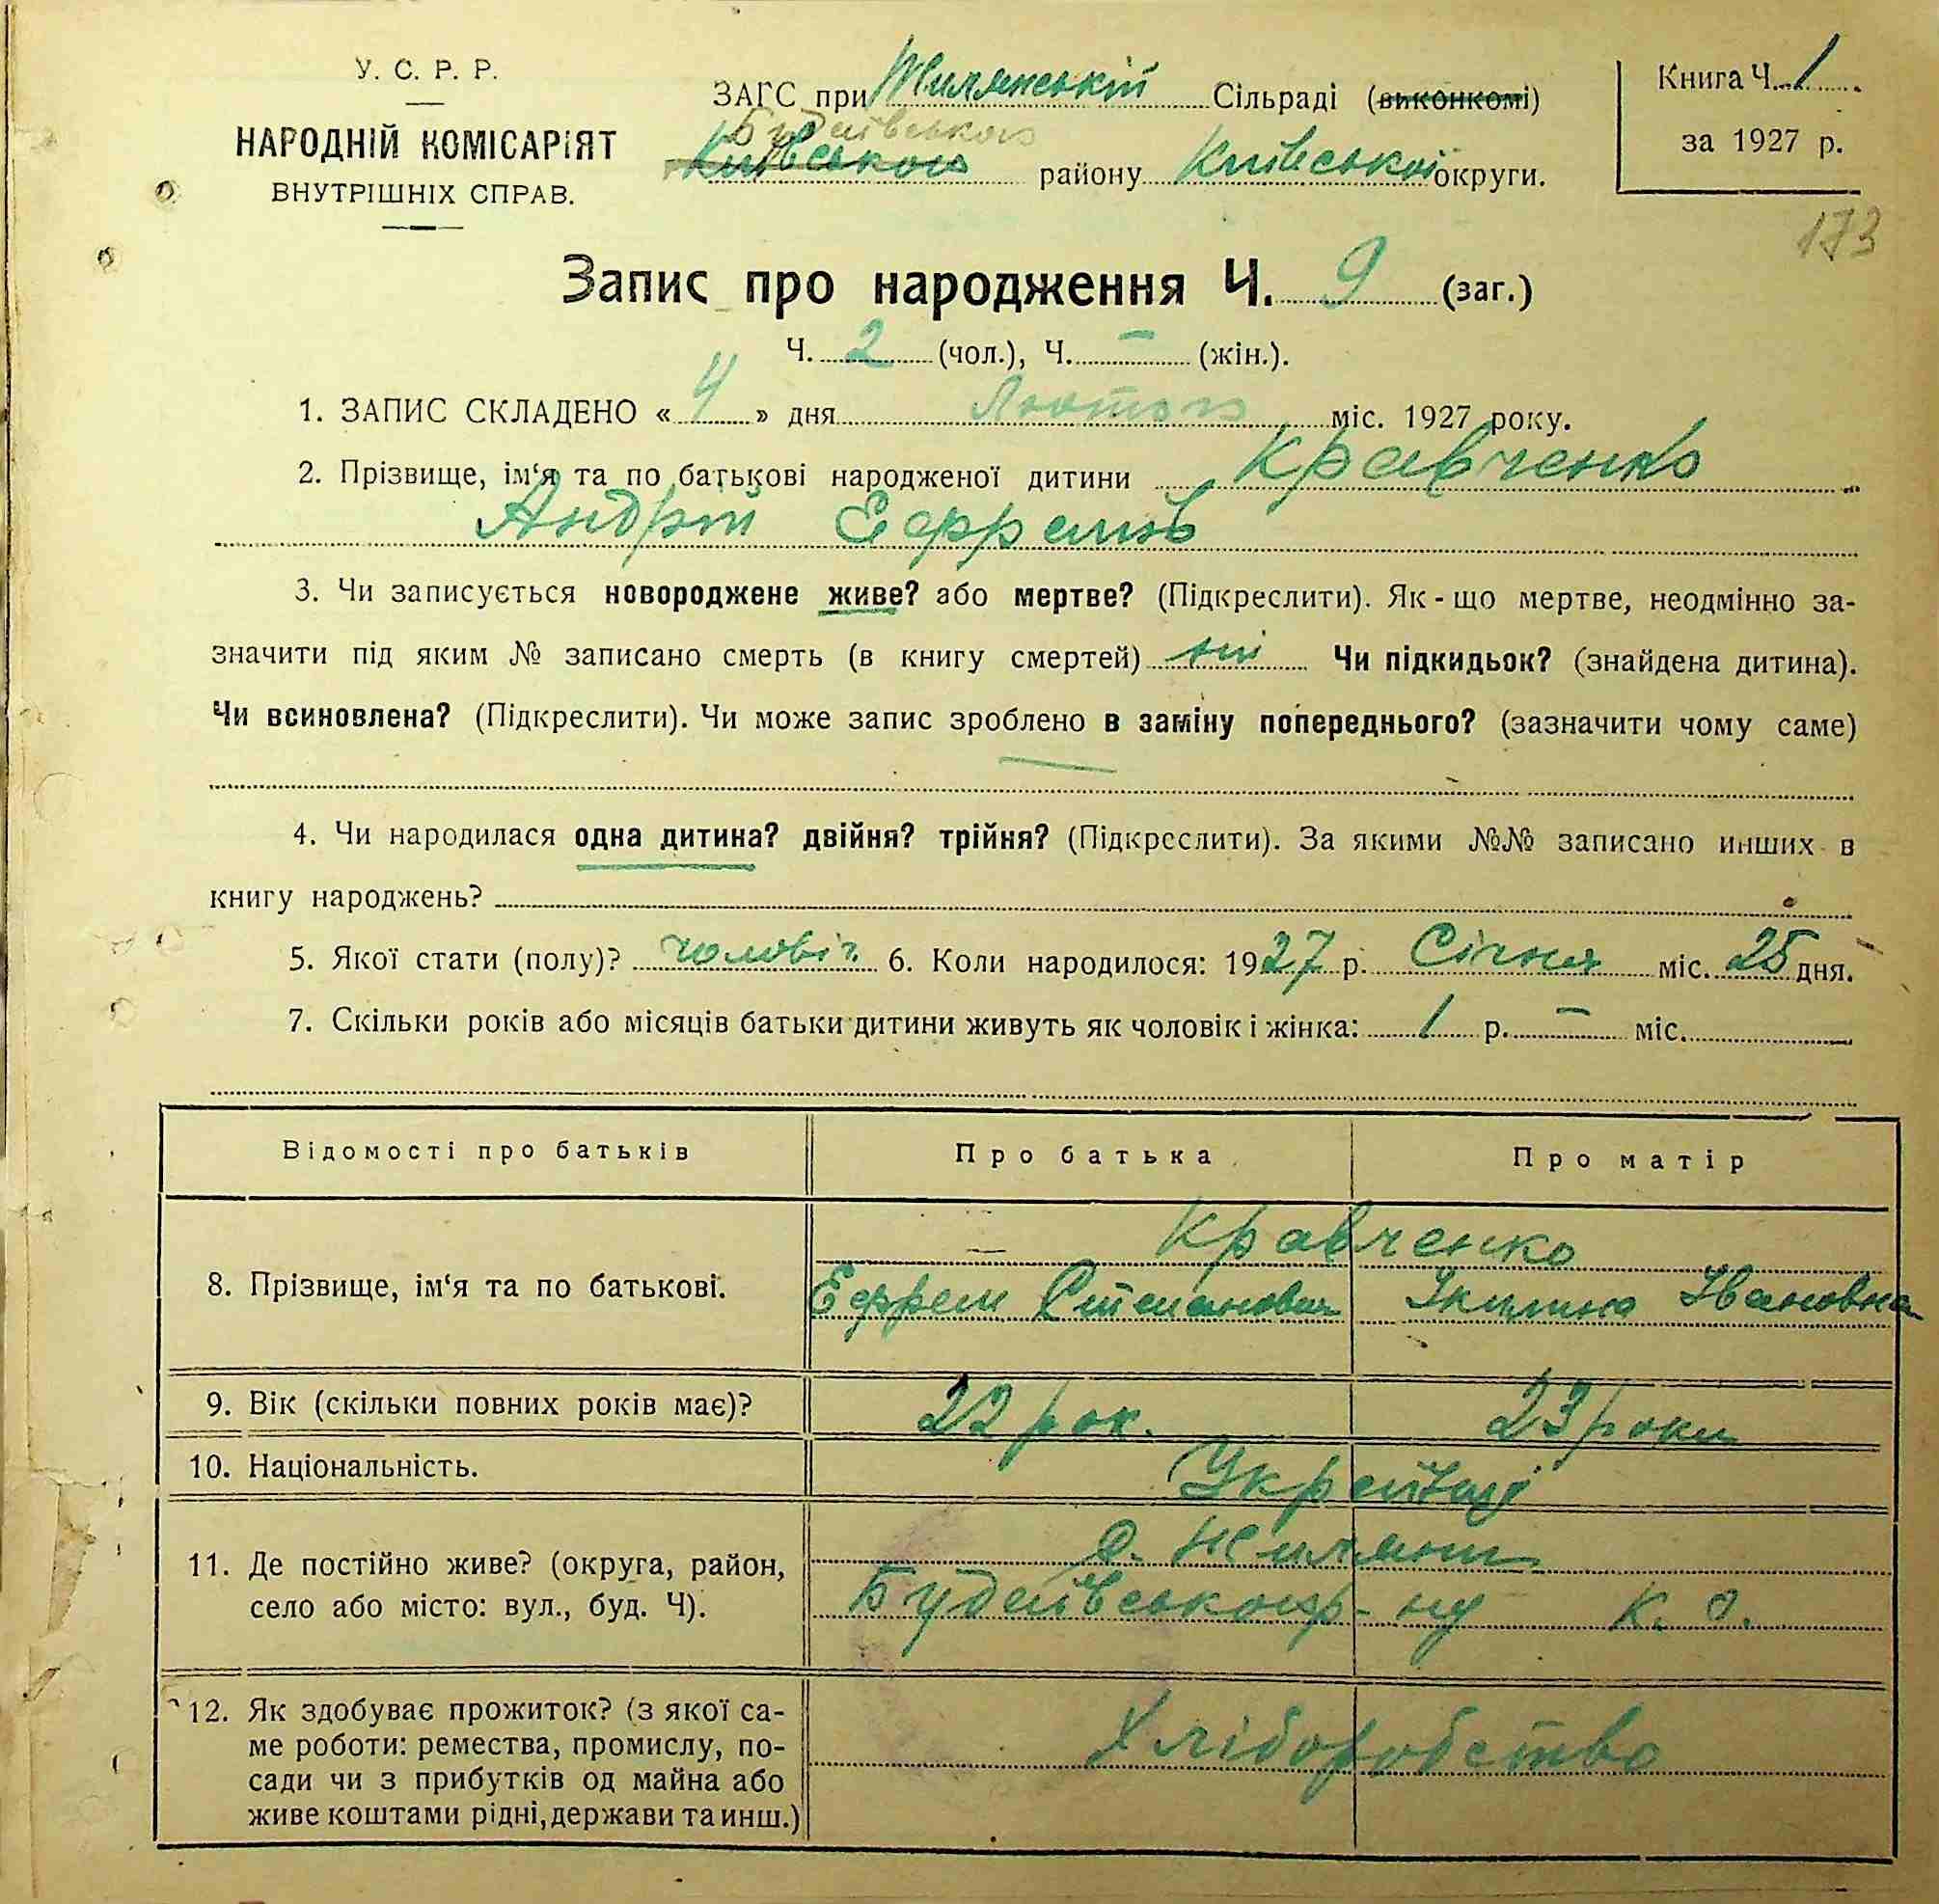 У. С. Р. Р.
НАРОДНІЙ КОМІСАРІЯТ
ВНУТРІШНІХ СПРАВ.
ЗАГС при Жилянській Сільраді (виконкомі)
Будаївського
Київського району Київської округи.
Книга Ч. 1
за 1927 р.
173
Запис про народження Ч. 9 (заг.)
Ч. 2 (чол.), Ч. — (жін.).
1. ЗАПИС СКЛАДЕНО « 4 » дня Лютого міс. 1927 року.
2. Прізвище, ім‘я та по батькові народженої дитини Кравченко
Андрій Ефремів
3. Чи записується новороджене живе? або мертве? (Підкреслити). Як - що мертве, неодмінно за-
значити під яким № записано смерть (в книгу смертей) ні Чи підкидьок? (знайдена дитина).
Чи всиновлена? (Підкреслити). Чи може запис зроблено в заміну попереднього? (зазначити чому саме)
4. Чи народилася одна дитина? двійня? трійня? (Підкреслити). За якими №№ записано инших в
книгу народжень?
5. Якої стати (полу)? чоловіч. 6. Коли народилося: 1927 р. Січня міс. 25 дня.
7. Скільки років або місяців батьки дитини живуть як чоловік і жінка: 1 р. — міс.
Відомості про батьків Про батька Про матір
8. Прізвище, ім‘я та по батькові. Кравченко
Ефрем Степанович Икилина Івановна
9. Вік (скільки повних років має)? 22 рок. 23 роки
10. Національність. Українці
11. Де постійно живе? (округа, район,
село або місто: вул., буд. Ч).
с. Жиляни
Будаївськог р-ну К. О.
12. Як здобуває прожиток? (з якої са-
ме роботи: ремества, промислу, по-
сади чи з прибутків од майна або
живе коштами рідні, держави та инш.)
Хліборобство